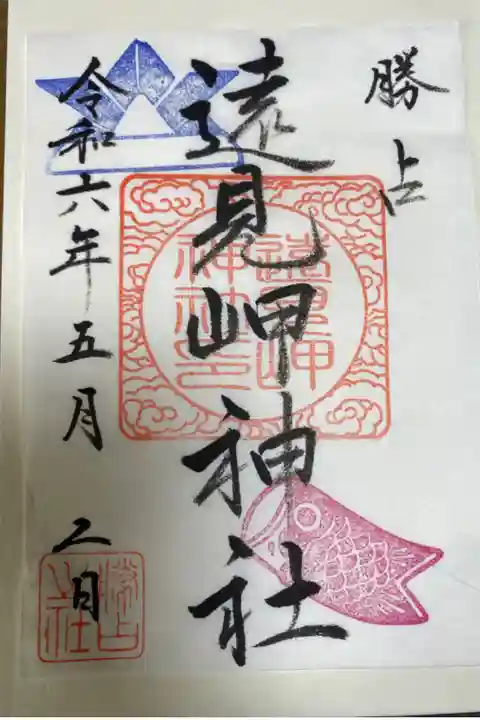 勝占
遠見岬神社
令和六年五月二日
遠見岬
神社印